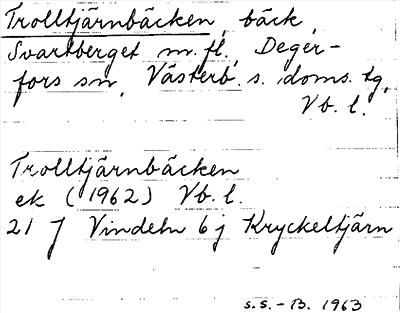 Trolltjärnbäcken, bäck,
Svartberget m.fl., Deger-
fors sn, Västerb. s. doms. tg,
Vb. l.
Trolltjärnbäcken
ek (1962) Vb. l.
21 J Vindeln 6 j Kryckeltjärn
S.S.-B. 1963